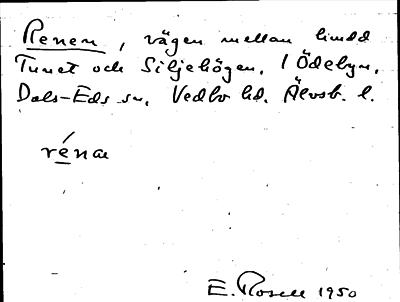 Renen, vägen mellan
Tunet och Siljehögen, i Ödebyn,
Dals-Eds sn, Vedbo hd. Älvsb. l.
réna
E. Rosell 1950